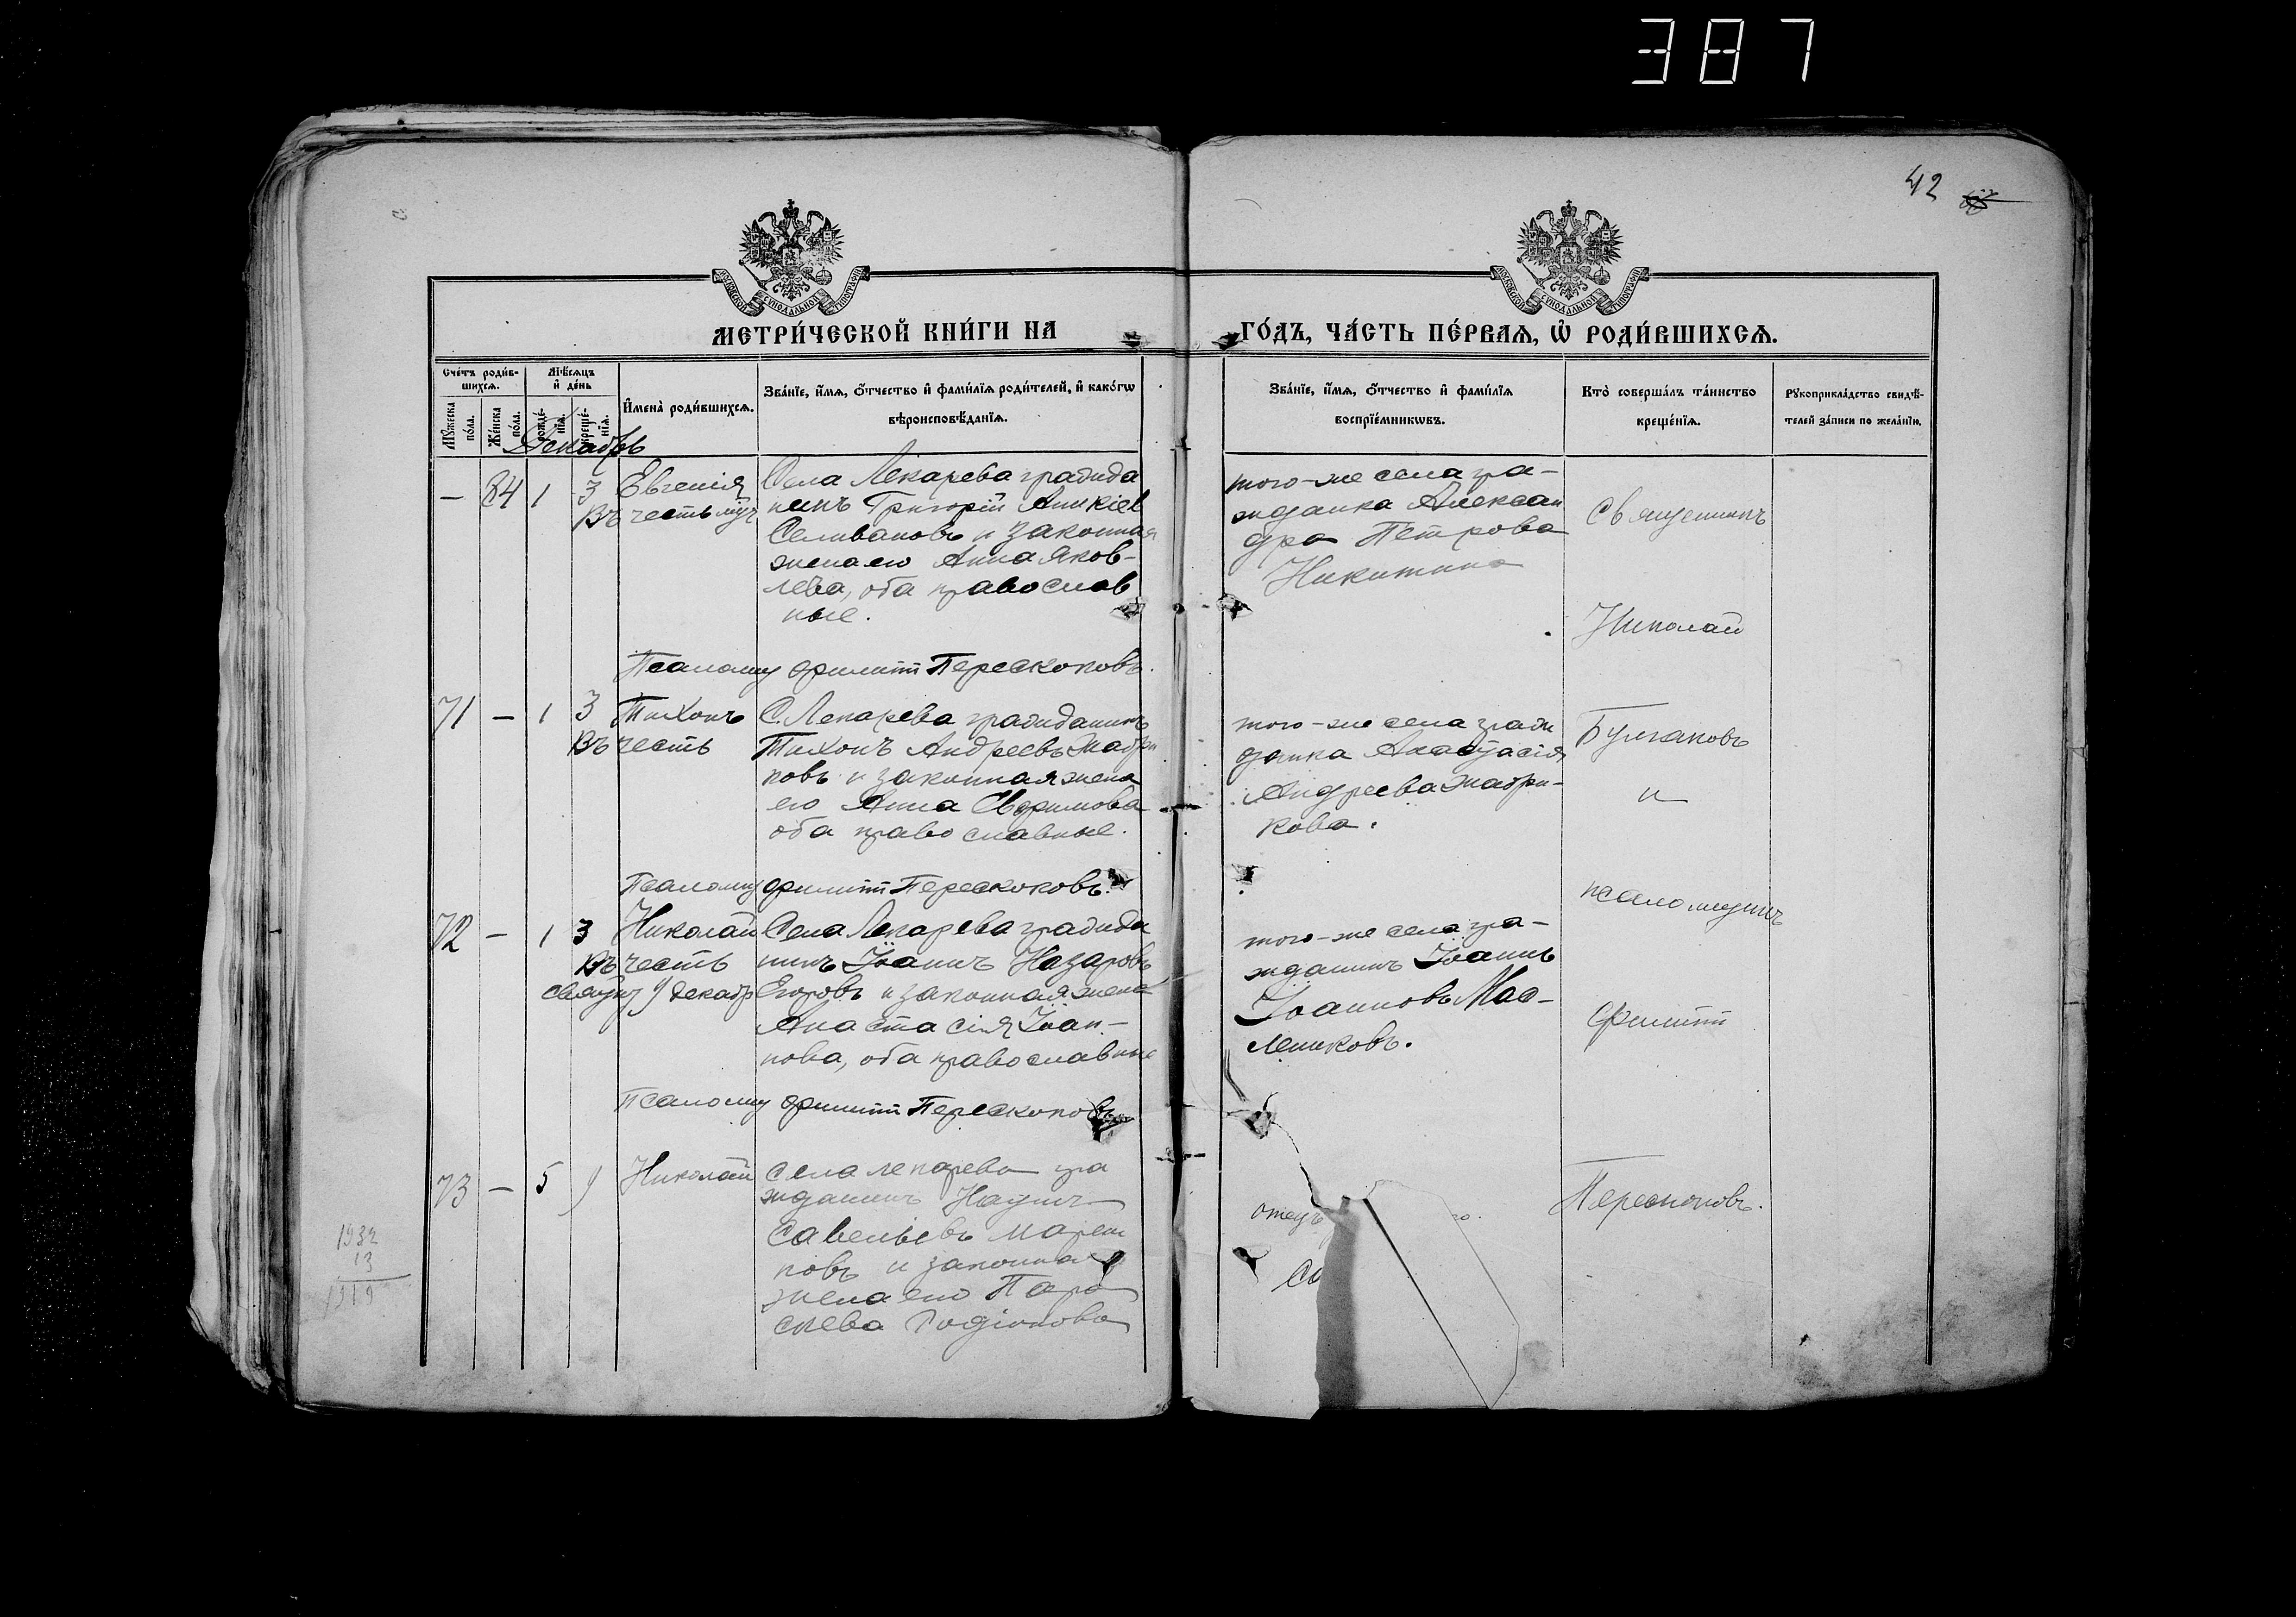 387
42
МОСКОВСКОЙ СѴНОДАЛЬНОЙ ТИПОГРАФІИ
МОСКОВСКОЙ СѴНОДАЛЬНОЙ ТИПОГРАФІИ
МЕТРИ́ЧЕСКОЙ КНИ́ГИ НА
ГО́ДЪ, ЧА́СТЬ ПЕ́РВАѦ, Ѡ҆ РОДИ́ВШИХСѦ.
Сче́тъ роди́в-
шихсѧ.
Мꙋ́жеска по́ла.
Же́нска по́ла.
Мѣ́сѧцъ и҆ де́нь
рожде́-нїѧ.
креще́-нїѧ.
И҆мена̀ роди́вшихсѧ.
Зва́нїе, и҆́мѧ, ѻ҆́тчество и҆ фами́лїѧ роди́телей, и҆ како́гѡ
вѣроисповѣ́данїѧ.
Зва́нїе, и҆́мѧ, ѻ҆́тчество и҆ фами́лїѧ
воспрїе́мникѡвъ.
Кто̀ соверша́лъ та́инство
креще́нїѧ.
Рꙋкоприкла́дство свидѣ́-
телей за́писи по жела́нїю.
Декабрь
— 84 1 3 Евгенія
Въ честь муч
Села Лекарева граждa
нинъ Григорій Аникіев
Селивановъ и законная
жена его Анна Яков-
лева, оба православ
ные.
того-же села гра-
жданка Алексан
дра Петрова
Никитина
Священникъ
Николай
Псаломщ Филиппъ Перескоковъ.
71 — 1 3 Тихонъ
Въ честь
С. Лекарева гражданинъ
Тихонъ Андреевъ Жабри
ковъ и законная жена
его Анна Евфимова
оба православные.
того-же села граж
данка Анастасія
Андреева Жабри-
кова.
Булгаковъ
и
Псаломщ Филиппъ Перескоковъ.
псаломщикъ
72 — 1 3 Николай
Въ честь
9 Декабр
Села Лекарева гражда
нинъ Іоаннъ Назаровъ
Егоровъ и законная жена
Анастасія Іоан-
нова, оба православные
того-же села гра-
жданинъ Іоаннъ
Іоанновъ Мас-
лениковъ.
Филиппъ
Псаломщ Филиппъ Перескоковъ
73 — 5 9 Николай
Села Лекарева гра
жданинъ Наумъ
Савельевъ
ковъ и законная
жена его Пара
скева Родіонова
отецъ
го.
Са
Перескоковъ.
1932
13
1919